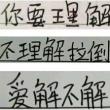 你要理解
不理解拉倒
爱解不解